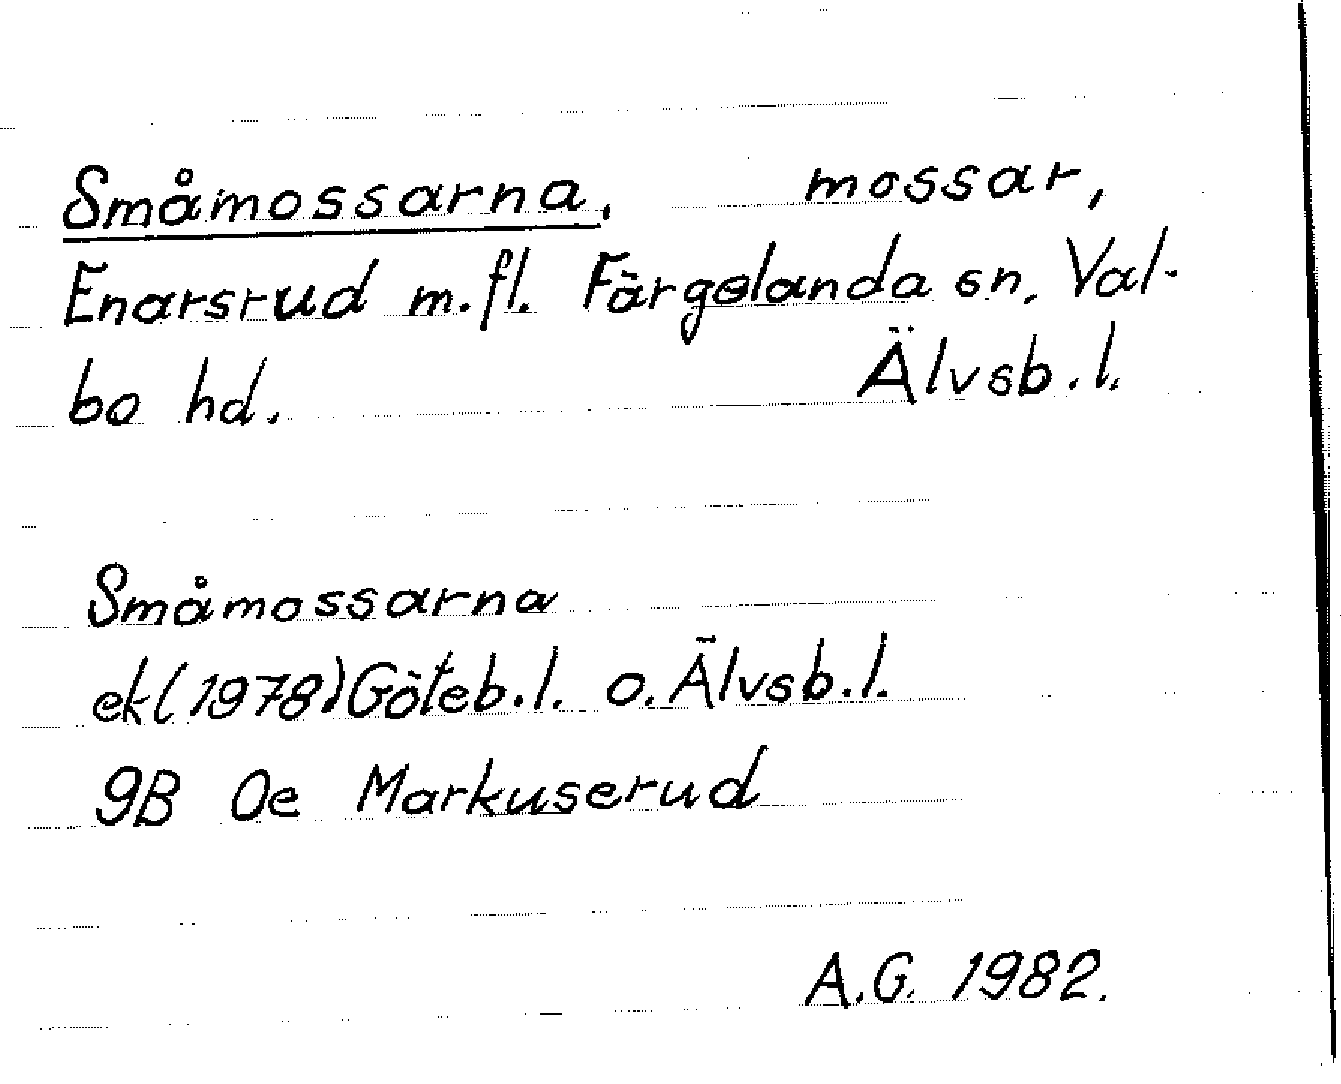 Småmossarna, mossar,
Enarsrud m.fl. Färgelanda sn, Val-
bo hd. Älvsb.l.
Småmossarna
ek(1978)Göteb.l. o. Älvsb.l.
9B 0e Markuserud
A.G. 1982.